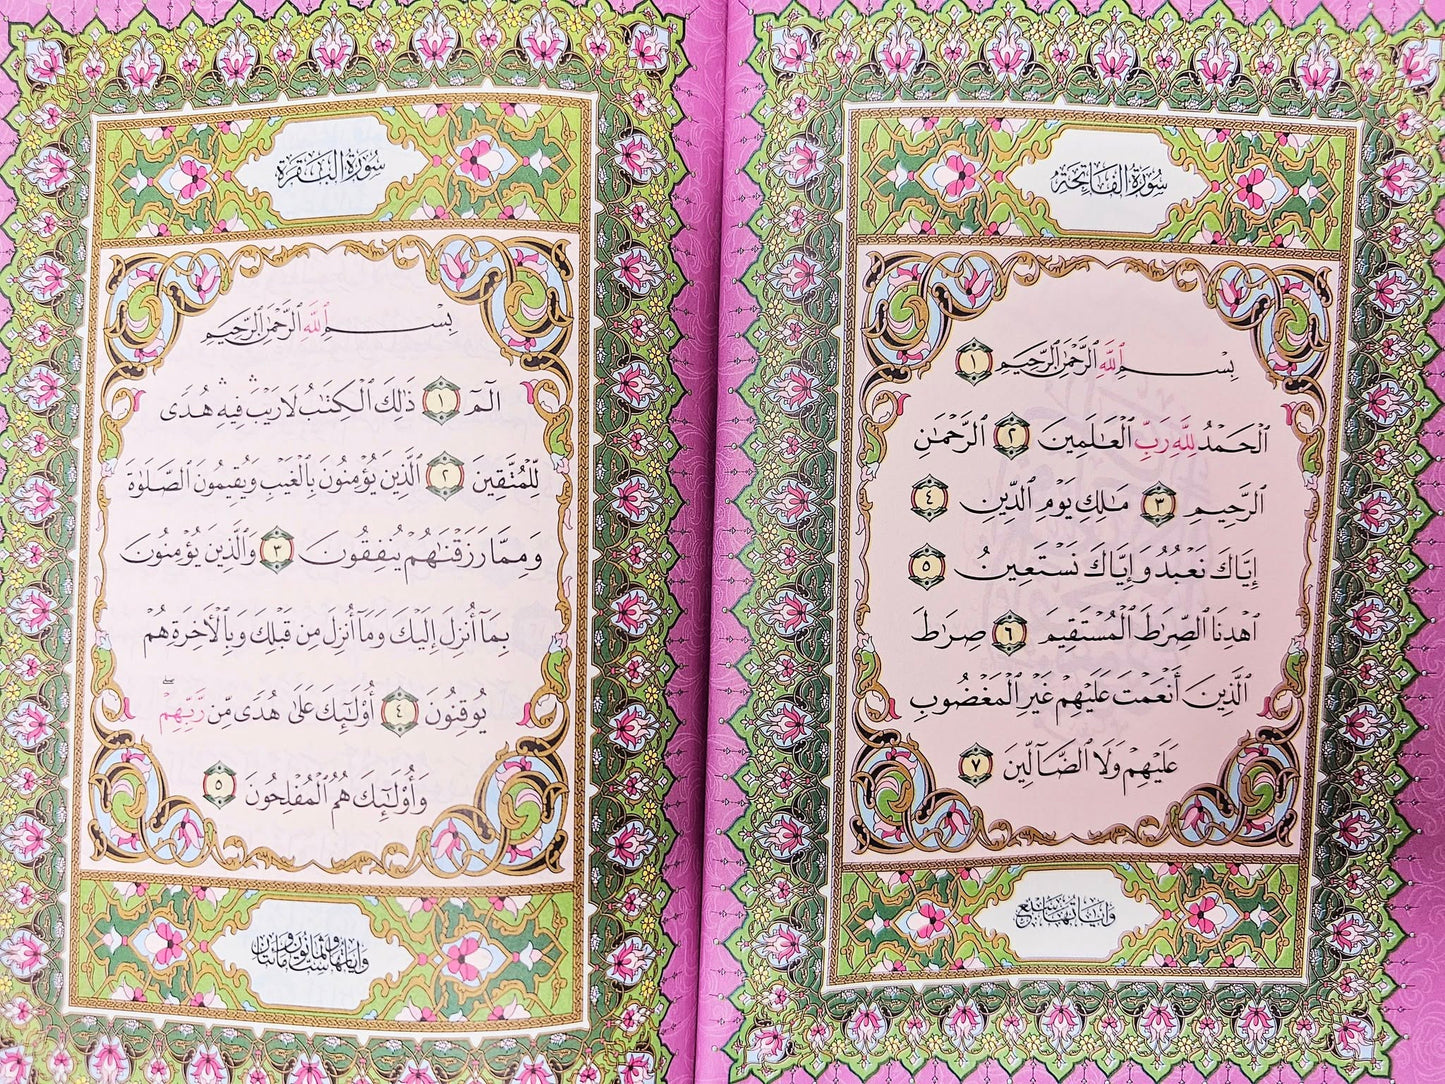 سُورَةُ الْفَاتِحَةِ
بِسْمِ اللَّهِ الرَّحْمَٰنِ الرَّحِيمِ ١
الْحَمْدُ لِلَّهِ رَبِّ الْعَالَمِينَ ٢ الرَّحْمَٰنِ
الرَّحِيمِ ٣ مَالِكِ يَوْمِ الدِّينِ ٤
إِيَّاكَ نَعْبُدُ وَإِيَّاكَ نَسْتَعِينُ ٥
اهْدِنَا الصِّرَاطَ الْمُسْتَقِيمَ ٦ صِرَاطَ
الَّذِينَ أَنْعَمْتَ عَلَيْهِمْ غَيْرِ الْمَغْضُوبِ
عَلَيْهِمْ وَلَا الضَّالِّينَ ٧
وَآيَاتُهَا سَبْعٌ
سُورَةُ الْبَقَرَةِ
بِسْمِ اللَّهِ الرَّحْمَٰنِ الرَّحِيمِ
الٓمٓ ١ ذَٰلِكَ الْكِتَابُ لَا رَيْبَ ۛ فِيهِ ۛ هُدًى
لِّلْمُتَّقِينَ ٢ الَّذِينَ يُؤْمِنُونَ بِالْغَيْبِ وَيُقِيمُونَ الصَّلَاةَ
وَمِمَّا رَزَقْنَاهُمْ يُنفِقُونَ ٣ وَالَّذِينَ يُؤْمِنُونَ
بِمَا أُنزِلَ إِلَيْكَ وَمَا أُنزِلَ مِن قَبْلِكَ وَبِالْآخِرَةِ هُمْ
يُوقِنُونَ ٤ أُولَٰئِكَ عَلَىٰ هُدًى مِّن رَّبِّهِمْ ۖ
وَأُولَٰئِكَ هُمُ الْمُفْلِحُونَ ٥
وَآيَاتُهَا سِتٌّ وَثَمَانُونَ وَمِائَتَانِ